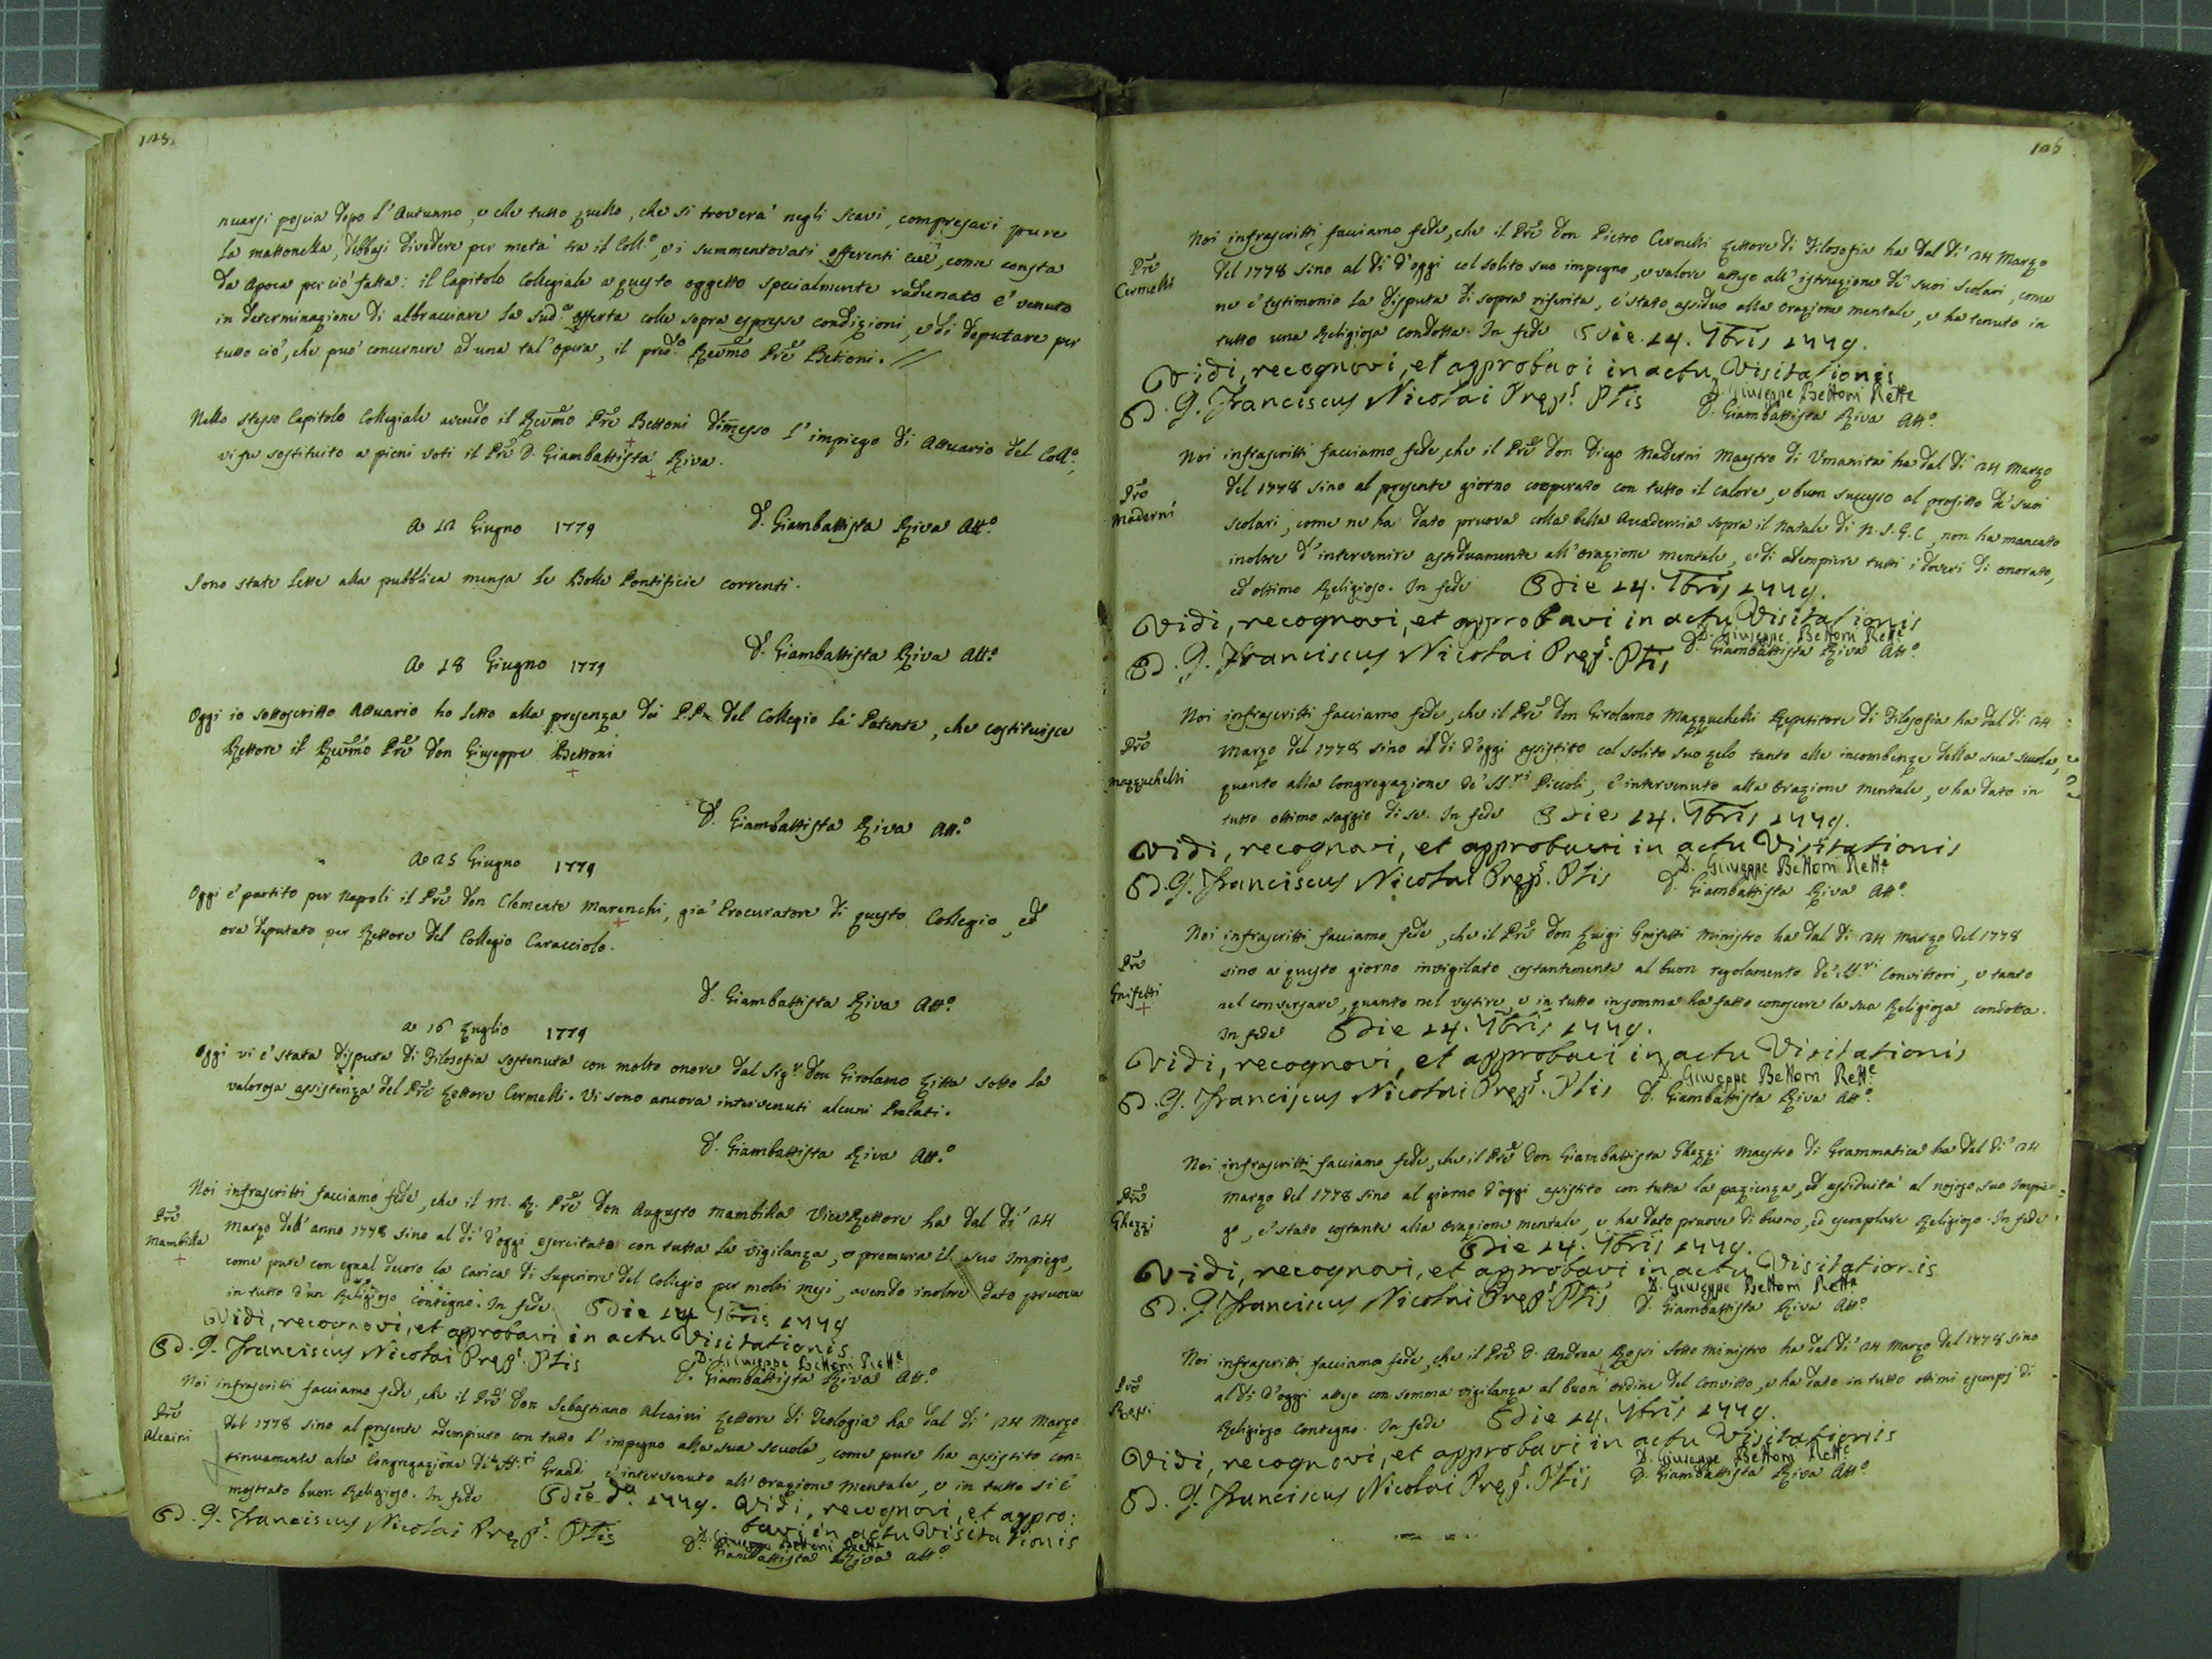 125
nuarsi poscia dopo l'Autunno, e che tutto quello, che si troverà negli scavi, compresavi pure
la mattonella, debbasi dividere per metà tra il Coll.o, e i summentovati offerenti, come consta
da Apoca per ciò fatta: il Capitolo Collegiale a questo oggetto specialmente radunato è venuto
in determinazione di abbracciare la sud.a offerta colle sopra espresse condizioni, e di deputare per
tutto ciò, che può concernere ad una tal'opera, il pred.o Revmo Pre Bettoni. //
Nello stesso Capitolo Collegiale avendo il Revmo Pre Bettoni dimesso l'impiego di Attuario del Coll.o,
vi fu sostituito a pieni voti il Pre D. Giambattista Riva.
D. Giambattista Riva Att.o
A 12 Giugno 1779
Sono state lette alla pubblica mensa le Bolle Pontificie correnti.
D. Giambattista Riva Att.o
A 18 Giugno 1779
Oggi io sottoscritto Attuario ho letto alla presenza dei P.P. del Collegio la Patente, che costituisce
Rettore il Revmo Pre don Giuseppe Bettoni
D. Giambattista Riva Att.o
A 25 Giugno 1779
Oggi è partito per Napoli il Pre don Clemente Marenchi, già Procuratore di questo Collegio, ed
ora deputato per Rettore del Collegio Caracciolo.
D. Giambattista Riva Att.o
A 16 Luglio 1779
Oggi vi è stata disputa di Filosofia sostenuta con molto onore dal Sig.r don Girolamo Litta sotto la
valorosa assistenza del Pre Lettore Cermelli. Vi sono ancora intervenuti alcuni Prelati.
D. Giambattista Riva Att.o
Noi infrascritti facciamo fede, che il M. R. Pre Don Augusto Mambilla ViceRettore ha dal dì 24
Pre
Mambilla
Marzo dell'anno 1778 sino al dì d'oggi esercitato con tutta la vigilanza, e premura il suo Impiego,
come pure con egual decoro la Carica di Superiore del Collegio per molti mesi, avendo inoltre dato pruova
in tutto d'un Religioso contegno. In fede Die 14 7bris 1779
Vidi, recognovi, et approbavi in actu Visitationis.
D. G. Franciscus Nicolai Prep.s Plis
D. Giuseppe Bettoni Rett.e
D. Giambattista Riva Att.o
Noi infrascritti facciamo fede, che il Pre Don Sebastiano Alcaini Lettore di Teologia ha dal dì 24 Marzo
Pre
Alcaini
del 1778 sino al presente adempiuto con tutto l'impegno alla sua scuola, come pure ha assistito con=
tinuamente alla Congregazione de' SS.ri Grandi, è intervenuto all'orazione mentale, e in tutto si è
mostrato buon Religioso. In fede Die d.a 1779. Vidi, recognovi, et appro:
bavi in actu Visitationis
D. G. Franciscus Nicolai Prep.s Plis
D. Giuseppe Bettoni Rett.e
D. Giambattista Riva Att.o
126
Noi infrascritti facciamo fede, che il Pre don Pietro Cermelli Lettore di Filosofia ha dal dì 24 Marzo
Pre
Cermelli
del 1778 sino al dì d'oggi col solito suo impegno, e valore atteso all'istruzione de' suoi scolari, come
ne è testimonio la disputa di sopra riferita, è stato assiduo alla orazione mentale, e ha tenuto in
tutto una Religiosa condotta. In fede Die 14. 7bris 1779.
Vidi, recognovi, et approbavi in actu Visitationis
D. G. Franciscus Nicolai Prep.s Plis
D. Giuseppe Bettoni Rett.e
D. Giambattista Riva Att.o
Noi infrascritti facciamo fede, che il Pre don Diego Maderni Maestro di Umanità ha dal dì 24 Marzo
Pre
Maderni
del 1778 sino al presente giorno cooperato con tutto il calore, e buon successo al profitto de' suoi
scolari, come ne ha dato pruova colla bella Accademia sopra il Natale di N.S.G.C, non ha mancato
inoltre d'intervenire assiduamente all'orazione mentale, e di adempiere tutti i doveri di onorato,
ed ottimo Religioso. In fede Die 14. 7bris 1779.
Vidi, recognovi, et approbavi in actu Visitationis
D. G. Franciscus Nicolai Prep.s Plis
D. Giuseppe Bettoni Rett.e
D. Giambattista Riva Att.o
Noi infrascritti facciamo fede, che il Pre don Girolamo Mazzuchelli Repetitore di Filosofia ha dal dì 24
Pre
Mazzuchelli
Marzo del 1778 sino al dì d'oggi assistito col solito suo zelo tanto alle incombenze della sua scuola,
quanto alla Congregazione de' SS.ri Piccoli, è intervenuto alla orazione mentale, e ha dato in
tutto ottimo saggio di se. In fede Die 14. 7bris 1779.
Vidi, recognovi, et approbavi in actu Visitationis
D. G. Franciscus Nicolai Prep.s Plis
D. Giuseppe Bettoni Rett.e
D. Giambattista Riva Att.o
Noi infrascritti facciamo fede, che il Pre don Luigi Gnifetti Ministro ha dal dì 24 Marzo del 1778
Pre
Gnifetti
sino a questo giorno invigilato costantemente al buon regolamento de' SS.ri Convittori, e tanto
nel conversare, quanto nel vestire, e in tutto insomma ha fatto conoscere la sua Religiosa condotta.
In fede Die 14. 7bris 1779.
Vidi, recognovi, et approbavi in actu Visitationis
D. G. Franciscus Nicolai Prep.s Plis
D. Giuseppe Bettoni Rett.e
D. Giambattista Riva Att.o
Noi infrascritti facciamo fede, che il Pre Don Giambattista Ghezzi Maestro di Grammatica ha dal dì 24
Pre
Ghezzi
Marzo del 1778 sino al giorno d'oggi assistito con tutta la pazienza, ed assiduità al nojoso suo Impie=
go, è stato costante alla orazione mentale, e ha dato pruove di buono, ed esemplare Religioso. In fede
Die 14. 7bris 1779.
Vidi, recognovi, et approbavi in actu Visitationis
D. G. Franciscus Nicolai Prep.s Plis
D. Giuseppe Bettoni Rett.e
D. Giambattista Riva Att.o
Noi infrascritti facciamo fede, che il Pre D. Andrea Rossi Sotto Ministro ha dal dì 24 Marzo del 1778 sino
Pre
Rossi
al dì d'oggi atteso con somma vigilanza al buon ordine del Convitto, e ha dato in tutto ottimi esempj di
Religioso contegno. In fede Die 14. 7bris 1779.
Vidi, recognovi, et approbavi in actu Visitationis
D. G. Franciscus Nicolai Prep.s Plis
D. Giuseppe Bettoni Rett.e
D. Giambattista Riva Att.o